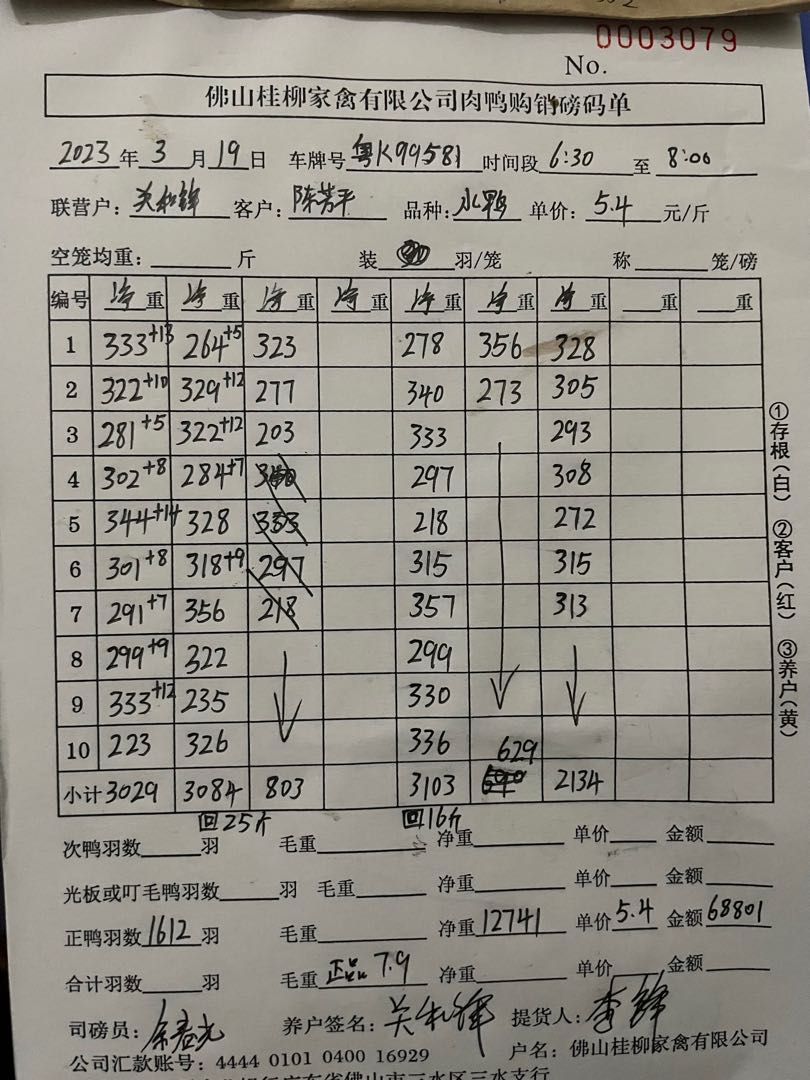 0003079
No.
佛山桂柳家禽有限公司肉鸭购销磅码单
2023年3月19日 车牌号粤K99581 时间段6:30至8:00
联营户:关和锋 客户:陈芳平 品种:水鸭 单价:5.4元/斤
空笼均重:____斤 装____羽/笼 称____笼/磅
编号 净重 净重 净重 净重 净重 净重 净重 __重 __重
1 333+13 264+5 323 278 356 328
2 322+10 329+12 277 340 273 305
3 281+5 322+12 203 333 293
4 302+8 284+7 297 308
5 344+14 328 333 218 272
6 301+8 318+9 297 315 315
7 291+7 356 218 357 313
8 299+9 322 299
9 333+12 235 330
10 223 326 336 629
小计 3029 3084 803 3103 2134
回25斤 回16斤
次鸭羽数____羽 毛重____ 净重____ 单价____ 金额____
光板或叮毛鸭羽数____羽 毛重____ 净重____ 单价____ 金额____
正鸭羽数1612羽 毛重____ 净重12741 单价5.4 金额68801
合计羽数____羽 毛重正品7.9 净重____ 单价____ 金额____
司磅员: 养户签名:关和锋 提货人:李锋
公司汇款账号:4444 0101 0400 16929 户名:佛山桂柳家禽有限公司
银行广东省佛山市三水区三水支行
①存根(白) ②客户(红) ③养户(黄)